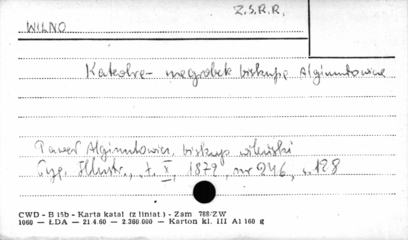 Z.S.R.R.
WILNO
Katedra - nagrobek biskupa Alginutowicza
Paweł Alginutowicz, biskup wileński
Tyg. Illustr., t. X, 1872, nr 246, s. 128
CWD - B 15b - Karta katal (z liniat.) - Zam 788/ZW
1060 — ŁDA — 21.4.60 — 2.360.000 — Karton kl. III A1 160 g